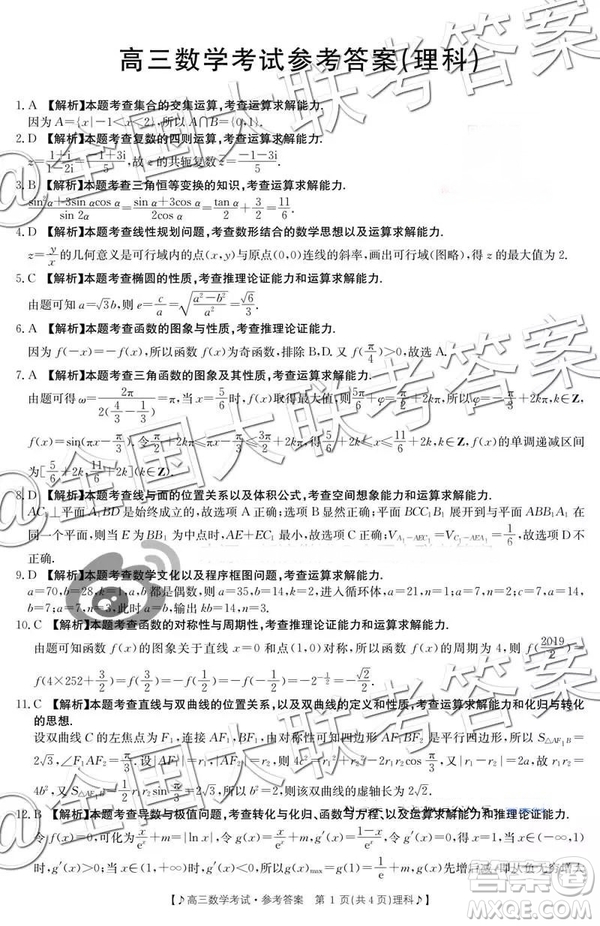 高三数学考试参考答案(理科)
1. A 【解析】本题考查集合的交集运算,考查运算求解能力.
因为A={x|-1<x<2},所以A∩B={0,1}.
2. D 【解析】本题考查复数的四则运算,考查运算求解能力.
z=(1+i)/(1-2i)=(-1+3i)/5,故z的共轭复数z=(-1-3i)/5.
3. B 【解析】本题考查三角恒等变换的知识,考查运算求解能力.
(sin²α+3sin αcos α)/sin 2α=(sin α+3cos α)/2cos α=tan α/2+3/2=11/6.
4. D 【解析】本题考查线性规划问题,考查数形结合的数学思想以及运算求解能力.
z=y/x的几何意义是可行域内的点(x,y)与原点(0,0)连线的斜率,画出可行域(图略),得z的最大值为2.
5. C 【解析】本题考查椭圆的性质,考查推理论证能力和运算求解能力.
由题可知a=√3b,则e=c/a=√((a²-b²)/a²)=√6/3.
6. A 【解析】本题考查函数的图象与性质,考查推理论证能力.
因为f(-x)=-f(x),所以f(x)为奇函数,排除B,D.又f(π/4)>0,故选A.
7. A 【解析】本题考查三角函数的图象及其性质,考查运算求解能力.
由题可得ω=2π/2(4/3-1/3)=π,当x=5/6时,f(x)取得最大值,则
f(x)=sin(πx-π/3),令π/2+2kπ≤πx-π/3≤3π/2+2kπ,k∈Z,则5/6+2k≤x≤11/6+2k,k∈Z,即f(x)的单调递减区间
为[5/6+2k,11/6+2k](k∈Z).
8. D 【解析】本题考查线与面的位置关系以及体积公式,考查空间想象能力和运算求解能力.
AC₁⊥平面A₁BD是始终成立的,故选项A正确;选项B显然正确;平面BCC₁B₁展开到与平面ABB₁A₁在
同一个平面,则当E为BB₁为中点时,AE+EC₁最小,故选项C正确;V=1/6,故选项D不
正确.
9. D 【解析】本题考查数学文化以及程序框图问题,考查运算求解能力.
a=70,b=28,k=1,a,b都是偶数,则a=35,b=14,k=2,进入循环体,a=21,b=14,a=7,b=14,c=7,a=14,
b=7,a=7,b=7,此时a=b,输出kb=14,n=3.
10. C 【解析】本题考查函数的对称性与周期性,考查运算求解能力.
由题可知函数f(x)的图象关于直线x=0和点(1,0)对称,所以函数f(x)的周期为4,则f(2019/2)=
f(4×252+3/2)=f(3/2)=-f(1/2)=-2^(-1/2)=-√2/2.
11. C 【解析】本题考查直线与双曲线的位置关系,以及双曲线的定义和性质,考查运算求解能力和化归与转化
的思想.
设双曲线C的左焦点为F₁,连接AF₁,BF₁,由对称性可知四边形AF₁BF是平行四边形,所以S△AF₁B=
2√3,∠F₁AF=π/3.设|AF₁|=r₁,|AF|=r₂,则4c²=r₁²+r₂²-2r₁r₂cos π/3,又|r₁-r₂|=2a,故r₁r₂=
4b²,又S△AF₁F=1/2 r₁r₂sin π/3,所以b²=2,故该双曲线的虚轴长为2√2.
12. B 【解析】本题考查导数与极值问题,考查转化与化归、函数与方程、以及运算求解能力.
令f(x)=0,可化为x/eˣ+m=|ln x|,令g(x)=x/eˣ+m,g′(x)=(1-x)/eˣ,令g′(x)=0,则x=1,当x∈(-∞,1)
时,g′(x)>0;当x∈(1,+∞)时,g′(x)<0,所以g(x)max=g(1)=1/e+m,且g(x)先增后减,即从负无穷增大
♪高三数学考试·参考答案 第1页(共4页)理科♪
@全国大联考答案